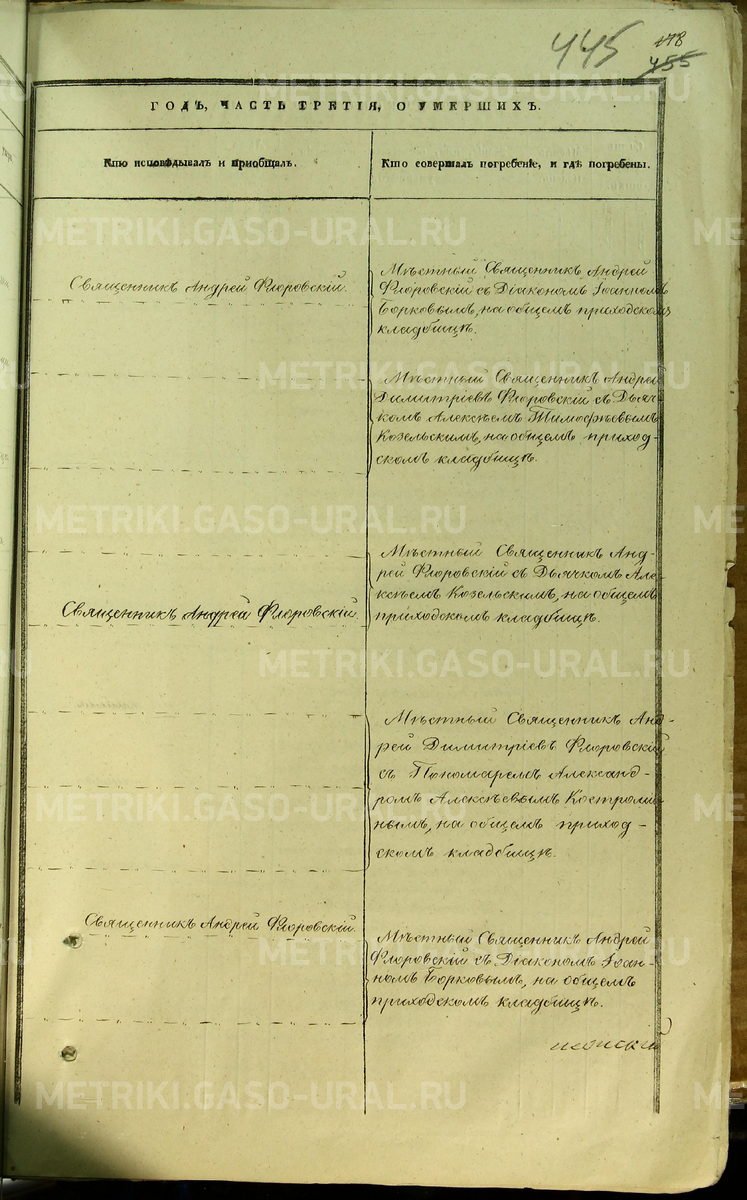 445
178
455
ГОДЪ, ЧАСТЬ ТРЕТІЯ, О УМЕРШИХЪ.
Кто исповѣдывалъ и пріобщалъ.
Кто совершалъ погребеніе, и гдѣ погребены.
Священникъ Андрей Флоровскій.
Мѣстный Священникъ Андрей
Флоровскій съ Діакономъ Іоанномъ
Борковымъ, на общемъ приходскомъ
кладбищѣ.
Мѣстный Священникъ Андрей
Димитріевъ Флоровскій съ Дьяч-
комъ Алексѣемъ Тимофѣевымъ
Козельскимъ, на общемъ приход-
скомъ кладбищѣ.
Мѣстный Священникъ Анд-
рей Флоровскій съ Дьячкомъ Але-
ксѣемъ Козельскимъ, на общемъ
приходскомъ кладбищѣ.
Священникъ Андрей Флоровскій.
Мѣстный Священникъ Анд-
рей Димитріевъ Флоровскій
съ Пономаремъ Александ-
ромъ Алексѣевымъ Костроми-
нымъ, на общемъ приход-
скомъ кладбищѣ.
Священникъ Андрей Флоровскій.
Мѣстный Священникъ Андрей
Флоровскій съ Діакономъ Іоан-
номъ Борковымъ, на общемъ
приходскомъ кладбищѣ.
METRIKI.GASO-URAL.RU